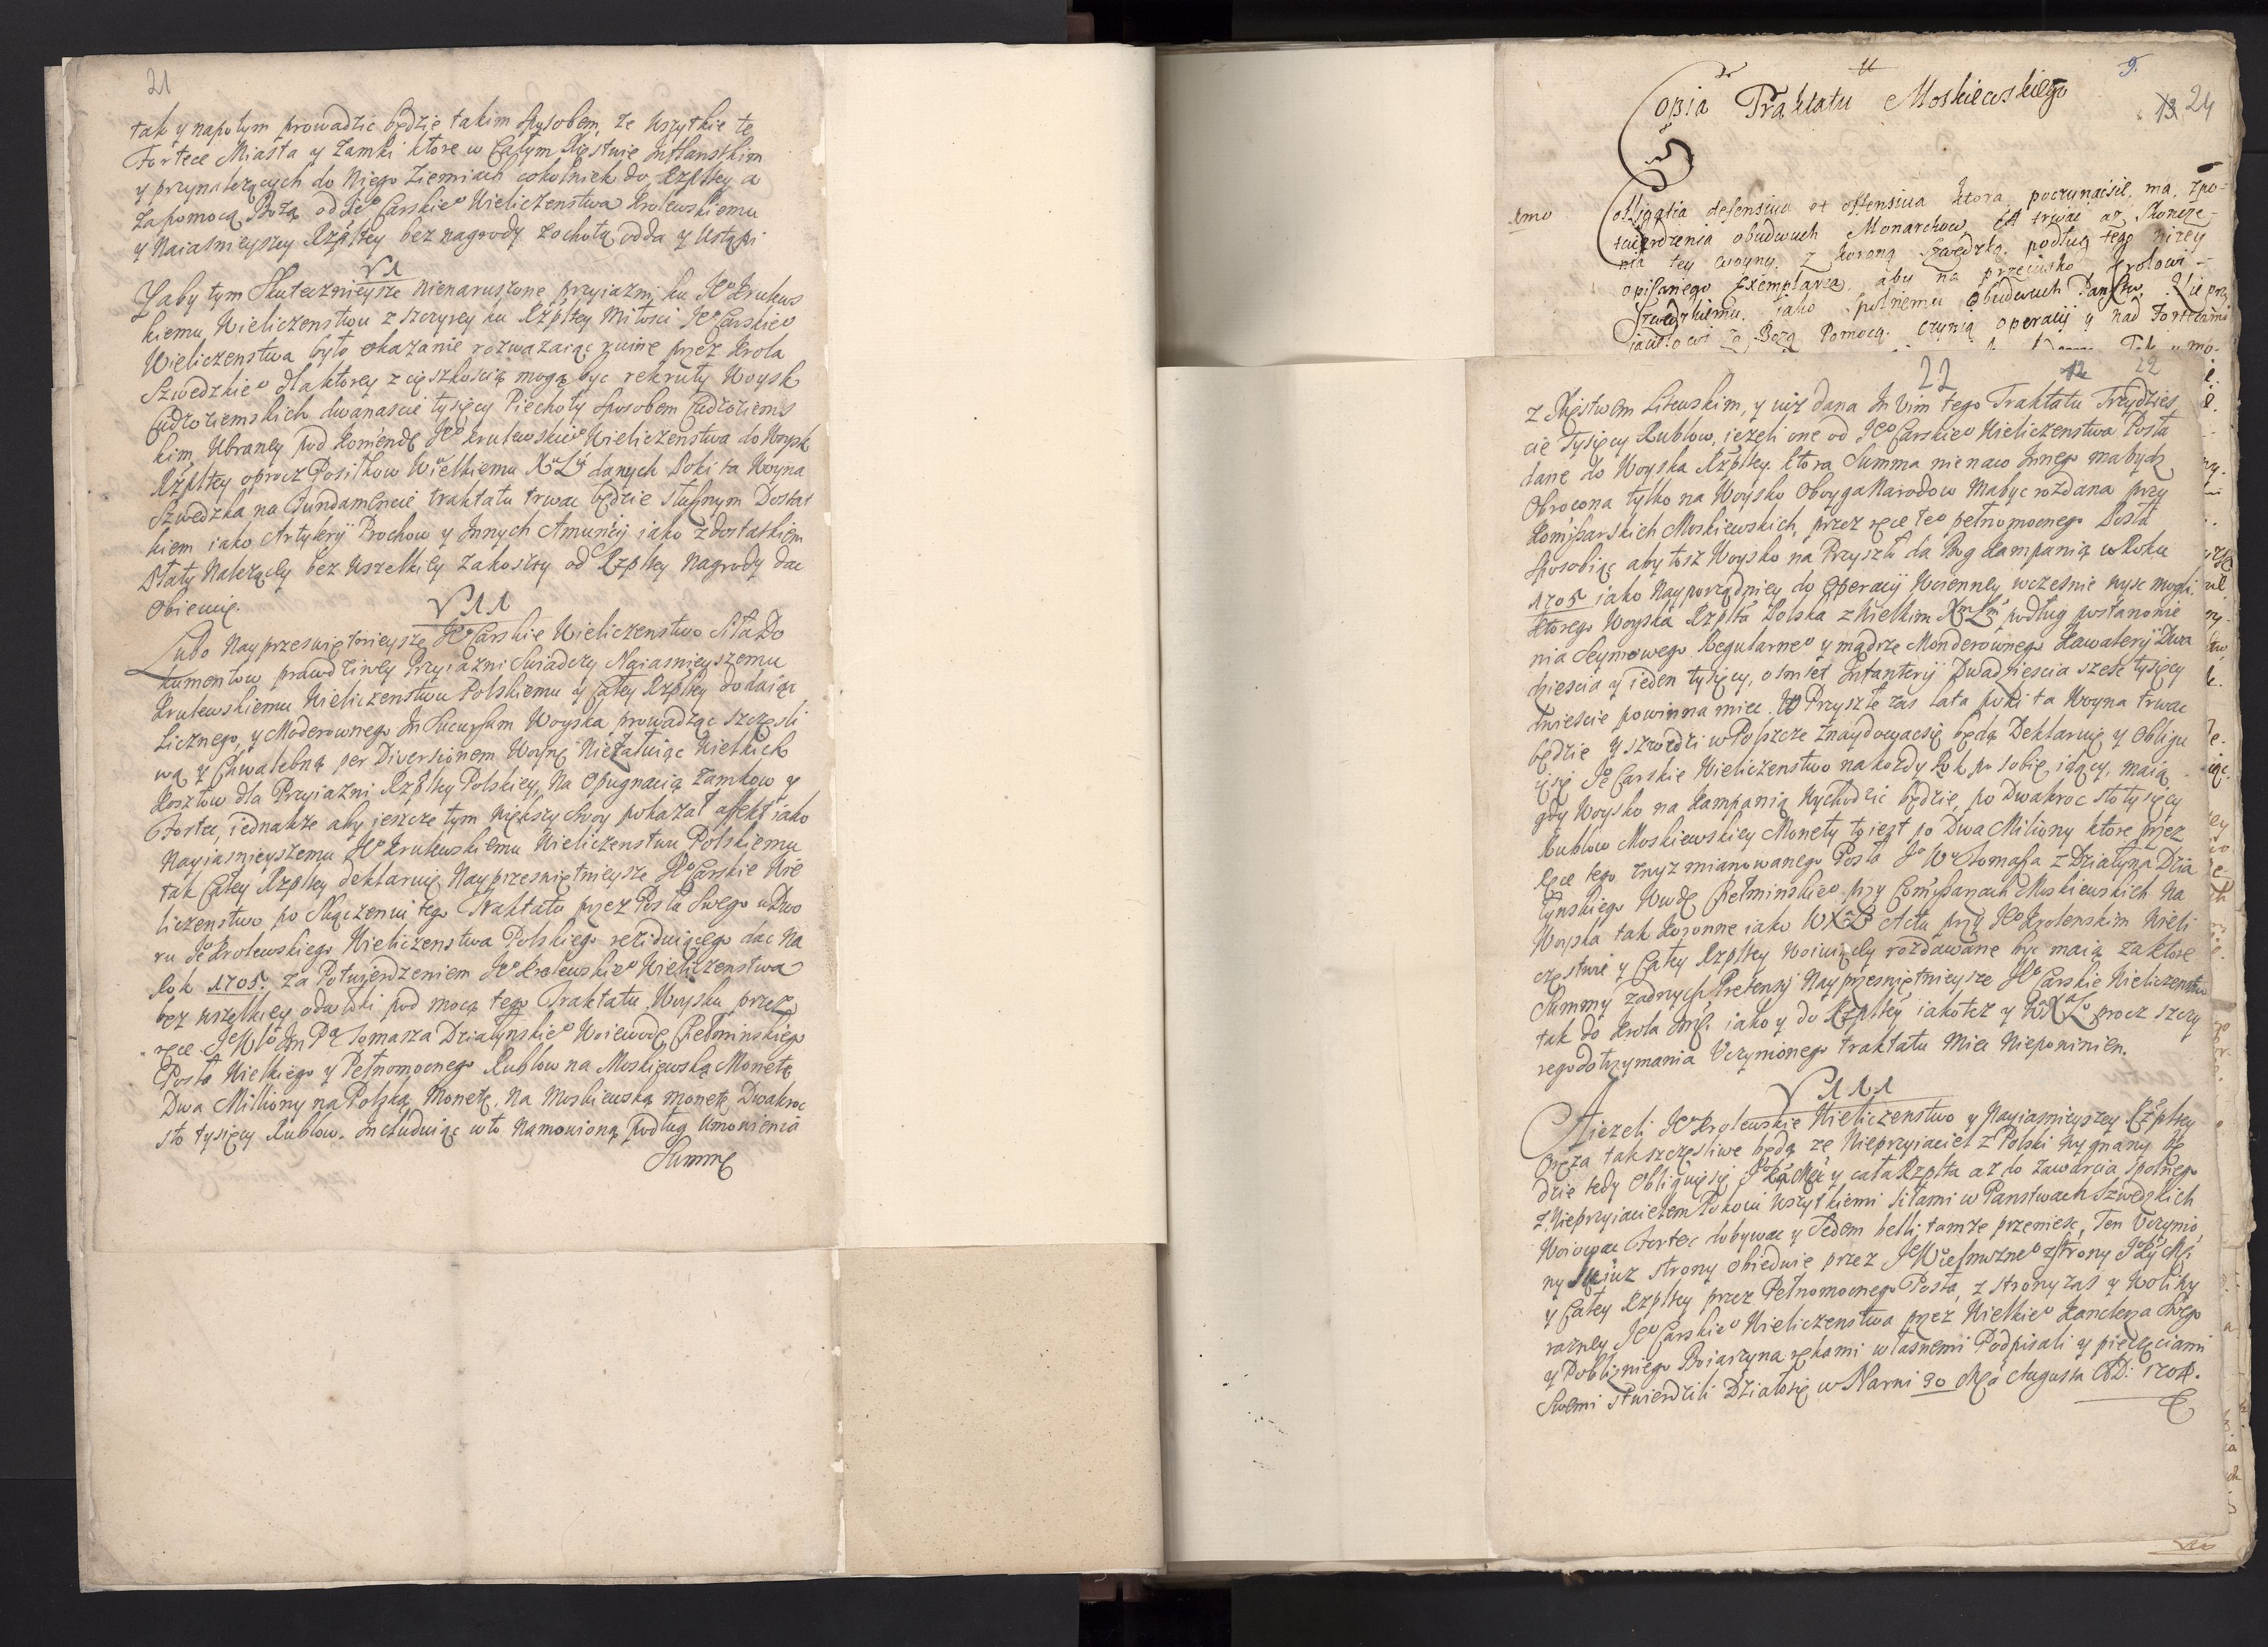 21
tak y napotym prowadzic będzie takim sposobem, ze wszytkie te
Fortece Miasta y Zamki ktore w Całym Xięstwie Inflanskim
y przynalezących do Niego Ziemiach cokolwiek do Rzpltey a
za pomocą Bozą od Je° Carskie° Wieliczenstwa Krolewskiemu
y Naiasnieyszey Rzpltey bez nagrody z ochotą odda y Ustąpi
V1
Zaby tym Skutecznieysze nienaruszone przyiazni ku Je° Krulews
kiemu Wieliczenstwu z szczyrey ku Rzpltey Miłosci Je° Carskie°
Wieliczenstwa było okazanie rozwazaiąc ruinę przez Krola
Szwedzkie° dla ktorey z cięszkoscią mogą byc rekruty Woysk
Cudzoziemskich dwanascie tysięcy Piechoty sposobem Cudzoziems
kim, Ubraney pod Komendę Je° Krulewskie° Wieliczenstwa do Woysk
Rzpltey oprocz Posiłkow Wielkiemu X Lu danych Poki ta Woyna
Szwedzka na Fundamencie traktatu trwac będzie słusznym Dostat
kiem iako Artyleryi Prochow y Innych Amuniciy iako z dostatkiem
Płaty Nalezącey bez wszelkiey zakosczy od Rzpltey nagrody dac
Obiecuię.
V11
Lubo Nayprzeswiętnieysze Je° Carskie Wieliczenstwo Siła Do
kumentow prawdziwey Przyiazni Swiadczy Naiasnieyszemu
Krulewskiemu Wieliczenstwu Polskiemu y Całey Rzpltey dodaiąc
Licznego, y Moderownego In Succursum Woyska prowadząc szczęsli
wą y Chwalebną per Diversionem Woynę Nieżałuiąc Wielkich
Kosztow dla Przyiazni Rzpltey Polskiey, Na Opugnacią Zamkow y
Fortec, iednakze aby ieszcze tym większy swoy pokazał affekt iako
Nayiasnieyszemu Je° Krulewskiemu Wieliczenstwu Polskiemu
tak Całey Rzpltey deklaruię Nayprzeswiętnieysze Je° Carskie Wie
liczenstwo po Złączeniu tego Traktatu przez Posła Swego u Dwo
ru Je° Krolewskiego Wieliczenstwa Polskiego reziduiącego dac Na
Rok 1705. za Potwierdzeniem Je° Krolewskie° Wieliczenstwa
bez wszelkiey odwłoki pod mocą tego Traktatu Woysku przez
ręce JeMści Pa Tomasza Działynskie° Woiewodę Chełminskiego
Posła Wielkiego y Pełnomocnego Rublow na Moskiewską Monetę
Dwa Milliony na Polską Monetę. Na Moskiewską monetę Dwakroc
sto tysięcy Rublow. Includuiąc w to Namowioną podług Umowienia
Summę
9.
Copia Traktatu Moskiewskiego
13 24
1mo Colligatia defensiva et offensiva ktora, poczynacsię, ma, z po-
twierdzenia obudwuch Monarchow, et trwac az Skoncze-
nia tey woyny, z koroną Szwedzką, podług tego nizey
opisanego Exemplarza. aby na przeciwko Krolowi
Szwedzkiemu, iako spolnemu Obudwuch Panstw, Nieprzy
iacielowi za Bozą Pomocą. czynią operacij y nad Fortecami
22 12 22
z Xięstwem Litewskim, y iusz dana In Vim tego Traktatu Trzydzies
cie Tysięcy Rublow, iezeli one od Je° Carskie° Wieliczenstwa Posła
dane do Woyska Rzpltey. ktora Summa nienaco Innego mabydz
Obrocona tylko na Woysko Oboyga Narodow Mabyc rozdana przy
Komissarskich Moskiewskich, przez ręce te° pełnomocnego Posła
sposobiąc aby tosz Woysko na Przyszłą da Bog Kampanią w Roku
1705 iako Nayporządniey do Operacij Woienney wczesnie wyśc mogło.
ktorego Woyska Rzplta Polska z Wielkim Xm Lm podług postanowie
nia Seymowego Regularne° y mądrze Monderownego Kawaleryi Dwa
dziescia y ieden tysięcy, osmset Infanteryi Dwadziescia szesc tysięcy
dwiescie powinna miec. W Przyszłe zas lata poki ta Woyna trwac
będzie y szwedzi w Polszcze Znaydowacsię będą Deklaruię y Obligu
ięsię Je° Carskie Wieliczenstwo na kozdy Rok po sobie idący, maią
gdy Woysko na Kampanią Wychodzic będzie, po Dwakroc sto tysięcy
Rublow Moskiewskiey Monety to iest po Dwa Miliony ktore przez
ręce tego zwyz mianowanego Posła Je° Wo Tomasza z Działyna Dzia
łynskiego Wwdę Chełminskie° przy Comissarzach Moskiewskich Na
Woyska tak Koronne iako WXL Actu przy Je° Krolewskim Wieli
częstwie y Całey Rzpltey Woiuiącey rozdawane byc maią za ktore
Summy zadnych Pretensy Nayprzeswiętnieysze Je° Carskie Wieliczenstwo
tak do Krola Im. iako y do Rzpltey iakotez y WXaLo procz szczy
rego dotrzymania Uczynionego traktatu Miec Niepowinien.
V111
A iezeli Je° Krolewskie Wieliczenstwo y Nayiasnieyszey Rzpltey
Oręza tak szczęsliwe będą ze Nieprzyiaciel z Polski wygnany bę
dzie tedy Obliguięsię JKMć y cała Rzplta az do zawarcia spolnego
z Nieprzyiacielem Pokoiu wszytkiemi siłami w Panstwach Szwedzkich
Woiowac Fortec dobywac y Sedem belli tamze przeniesc, Ten Uczynio
ny iusz strony obiedwie przez JeWielmozne° z strony JKMci
y Całey Rzpltey przez Pełnomocnego Posła, z strony zas y
Je° Carskie° Wieliczenstwa przez Wielkie° Kanclerza Swego
y Poblizniego Boiarzyna rękami własnemi Podpisali y pieczęciami
Swemi stwierdzili Działosię w Narwi 30 Mca Augusta AD: 1704.